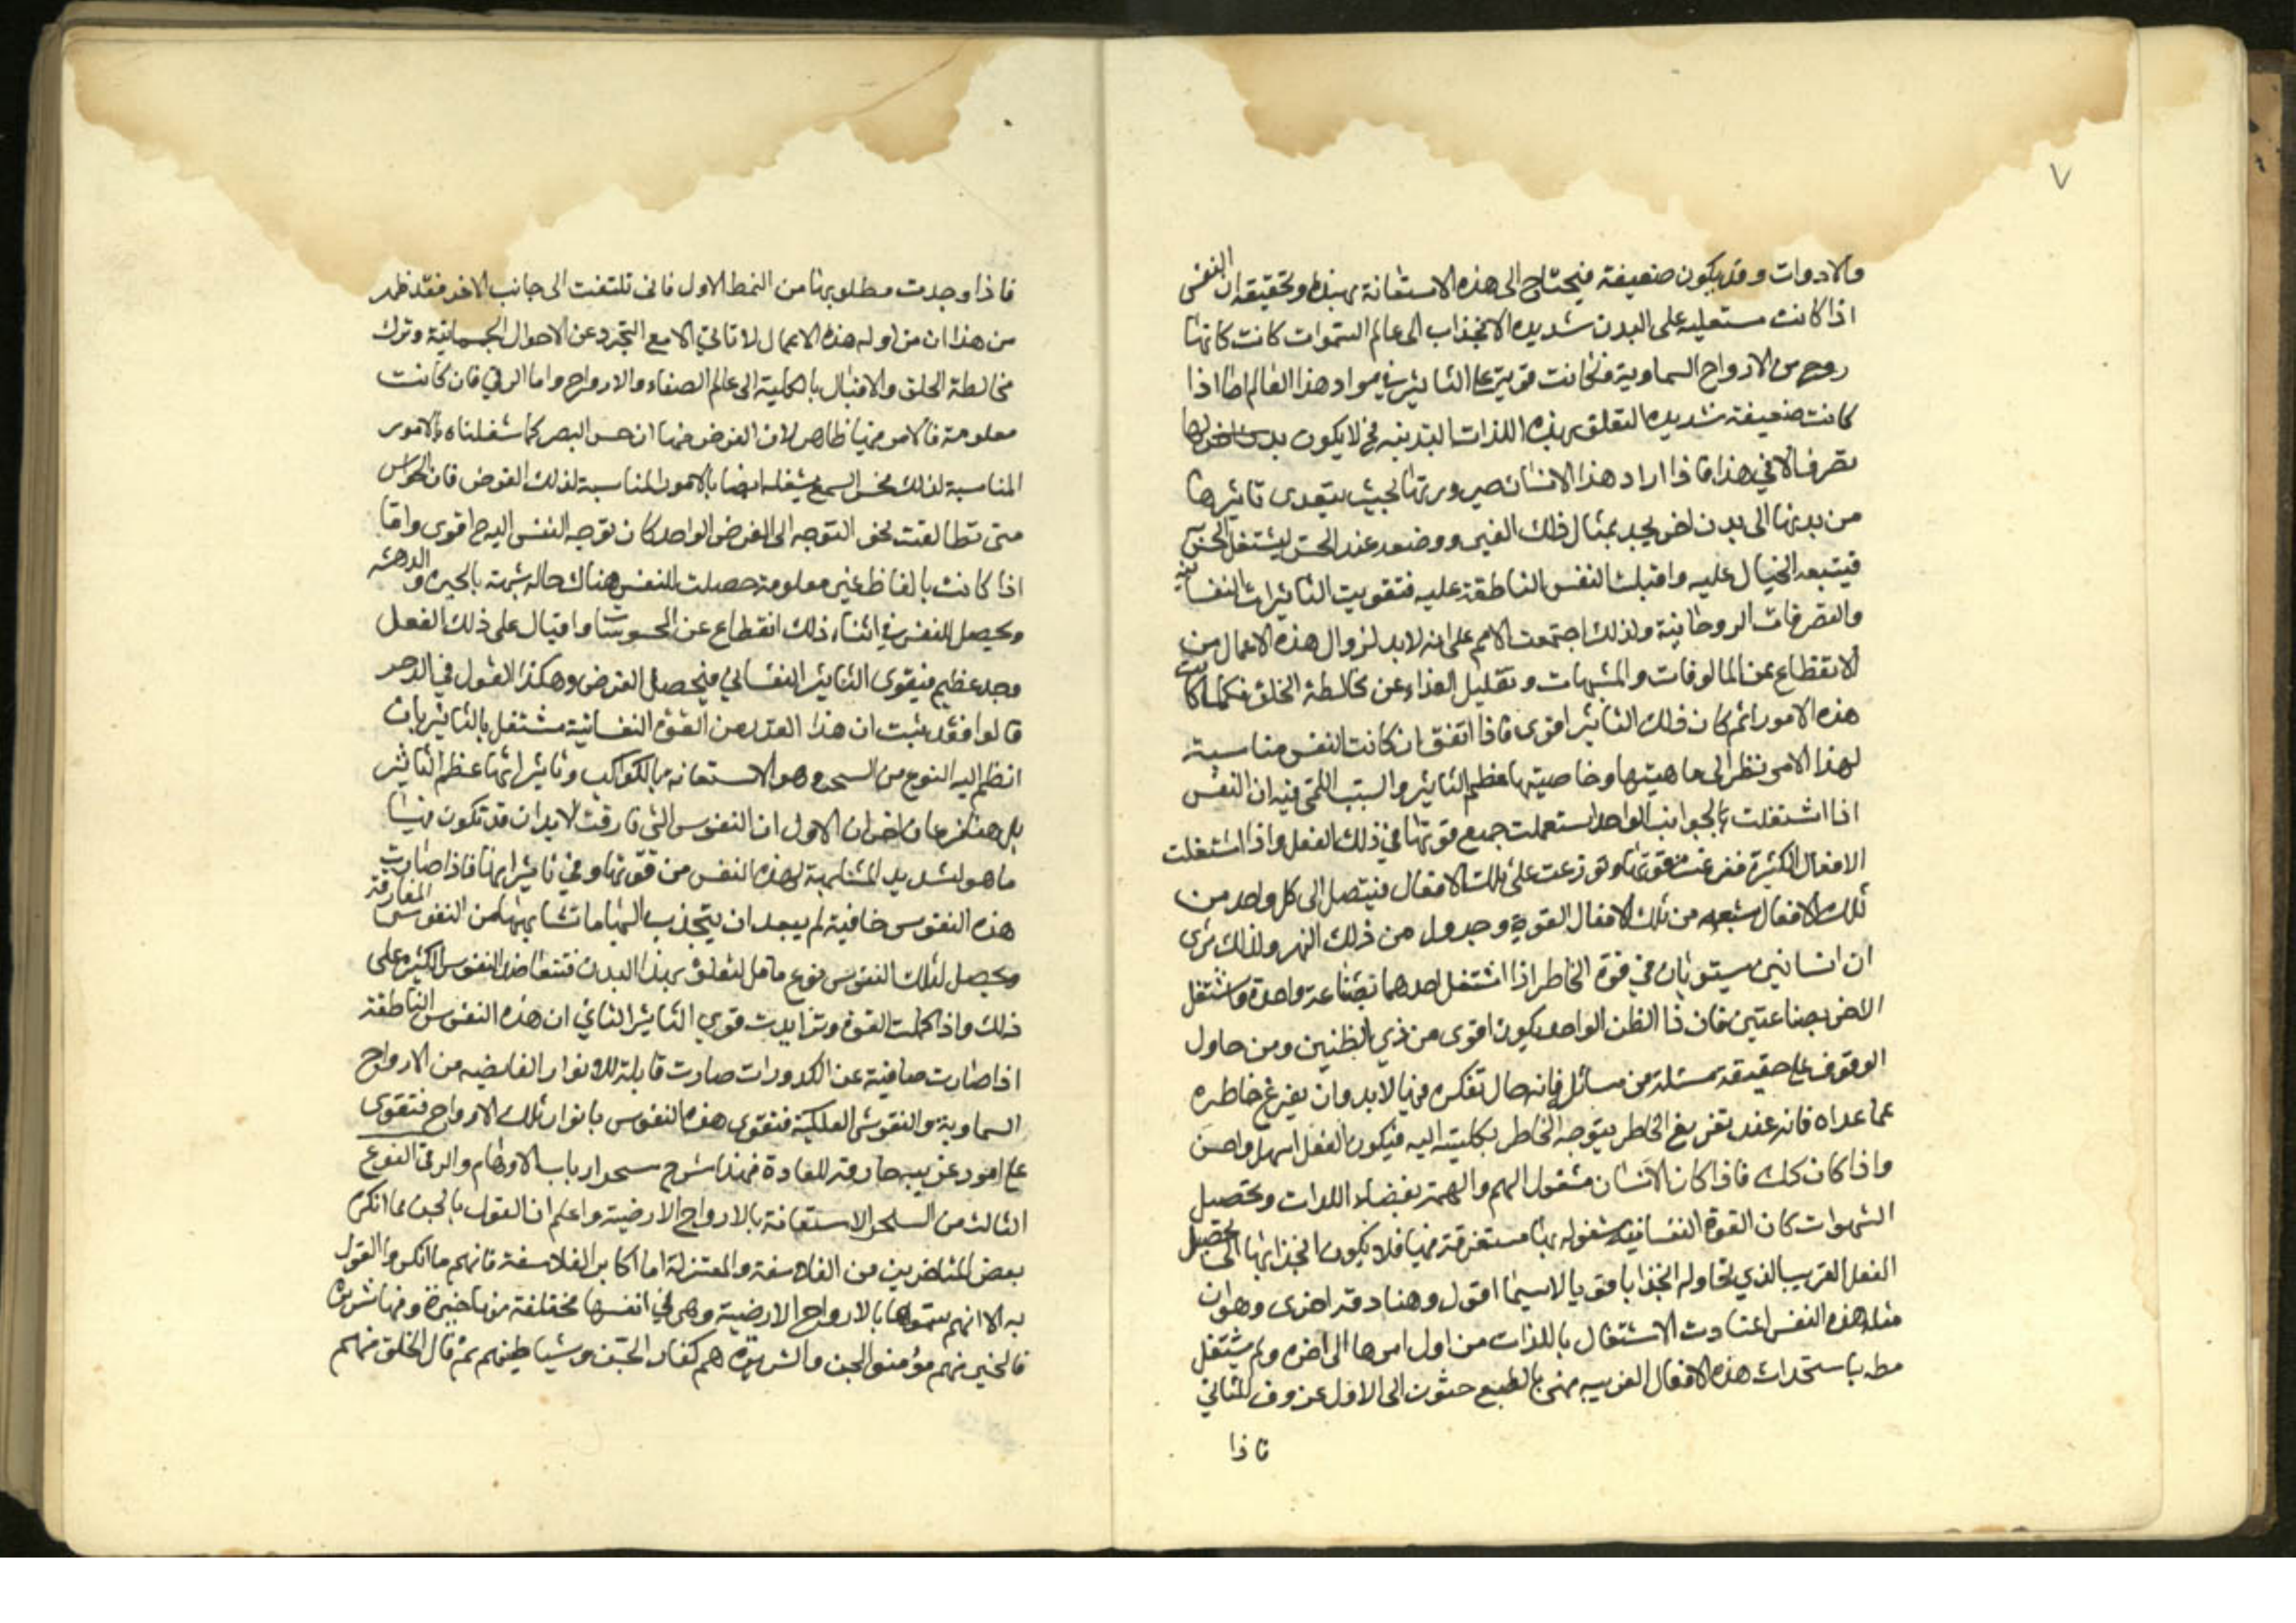 ٧
والادوات وقد يكون ضعيفة فيحتاج الى هذه الاستعانة بهذه وتحقيقه ان النفس
اذا كانت مستعليه على البدن شديده الانجذاب الى عالم السموات كانت كانها
روح من الارواح السماوية فكانت قوية على التاثير في مواد هذا العالم اما اذا
كانت ضعيفة شديده التعلق بهذه اللذات البدنيه فح لا يكون
تصرف الا في هذا فاذا اراد هذا الانسان صيرورتها بحيث يتعدى تاثيرها
من بدنها الى بدن اخر يجد بمثال ذلك الغير ووضعه عند الحس ليشتغل الحس
فيتبعه الخيال عليه واقبلت النفس الناطقة عليه فتقويت التاثيرات النفسانية
والتصرفات الروحانية ولذلك اجتمعت الامم على انه لابد لزوال هذه الاعمال من
الانقطاع عن المالوفات والمشتهات وتقليل الغذاء عن مخالطة الخلق فكلما كانت
هذه الامور اتم كان ذلك التاثير اقوى فاذا اتفق ان كانت النفس مناسبة
لهذا الامر نظر الى ماهيتها وخاصيتها عظم التاثير والسبب اللمى فيه ان النفس
اذا اشتغلت بالجوانب الواحد استعملت جميع قوتها في ذلك الفعل واذا اشتغلت
الافعال الكثيرة ففرغت قوتها وتوزعت على تلك الافعال فيتصل الى كل واحد من
تلك الافعال شعبه من تلك الافعال القوية وجدول من ذلك النهر ولذلك ترى
ان انسانين يستويان في قوة الخاطر اذا اشتغل احدهما بصناعة واحدة واشتغل
الاخر بصناعتين فان ذا الظن الواحد يكون اقوى من ذي الظنين ومن حاول
الوقوف على حقيقة مسئلة من مسائل فانه حال تفكره فيها لابد وان يفرغ خاطره
عما عداه فانه عند تفريغ الخاطر يتوجه الخاطر بكليته اليه فيكون الفعل اسهل واحسن
واذا كان كك فاذا كان الانسان مشغول الهم والهمة بقضاء اللذات وتحصيل
الشهوات كان القوة النفسانية مشغوله بها مستغرقة فيها فلا يكون انجذابها الى تحصيل
الفعل الغريب الذي تحاوله انجذابا قويا لاسيما اقول وهنا دقة اخرى وهو ان
مثل هذه النفس اعتادت الاشتغال باللذات من اول امرها الى اخره ولم يشتغل
مط باستحداث هذه الافعال الغريبه فهى بالطبع حثون الى الاول عزوف للثاني
فاذا
فاذا وجدت مطلوبها من النمط الاول فانى تلتفت الى جانب الاخر فقد ظهر
من هذا ان مزاوله هذه الاعمال لا تاتي الا مع التجرد عن الاحوال الجسمانية وترك
مخالطة الخلق والاقبال بالكلية الى عالم الصفاء والارواح واما الرقي فان كانت
معلومة فالامر فيها ظاهر لان الغرض منها ان حس البصر كما شغلناه بالامور
المناسبة لذلك فحس السمع يشغله ايضا بالامور المناسبة لذلك الغرض فان الحواس
متى تطابقت نحو التوجه الى الغرض الواحد كان توجه النفس اليه ح اقوى واما
اذا كانت بالفاظ غير معلومة حصلت للنفس هناك حاله شبهة بالحيرة والدهشه
ويحصل للنفس في اثناء ذلك انقطاع عن المحسوسات واقبال على ذلك الفعل
وجد عظيم فيقوى التاثير النفساني فيحصل الغرض وهكذا القول في الدحر
قالوا فقد ثبت ان هذا القدر من القوة النفسانية مشتغل بالتاثير بان
انظم اليه النوع من السحر وهو الاستعانه بالكواكب وتاثيراتها عظم التاثير
بل هنا فرعان اخران الاول ان النفوس التي فارقت الابدان قد تكون فيها
ما هو شديد المشابهة لهذه النفس من قوتها وفي تاثيراتها فاذا صارت
هذه النفوس خافية لم يبعد ان يتجذب اليها ما تشابهها من النفوس المفارقة
ويحصل لتلك النفوس نوع ما من لتعلق بهذا البدن فتتعاضد النفوس الكثيره على
ذلك واذا كملت القوة وتزايدت قوي التاثير الثاني ان هذه النفوس الناطقة
اذا صارت صافية عن الكدورات صارت قابلة للانوار الفايضه من الارواح
السماوية والنفوس الفلكية فتقوى هذه النفوس بانوار تلك الارواح فتقوى
على امور غريبه خارقة للعادة فهذا شرح سحر ارباب الاوهام والرقى النوع
الثالث من السحر الاستعانة بالارواح الارضية واعلم ان القول بالجن مما انكره
بعض المتاخرين من الفلاسفة والمعتزلة اما اكابر الفلاسفة فانهم ما انكروا القول
به الا انهم سموها بالارواح الارضية وهي في انفسها مختلفة منها خيرة ومنها شريرة
فالخير منهم مؤمنوا الجن والشريرة هم كفار الجن وشياطينهم ثم قال الخلق منهم